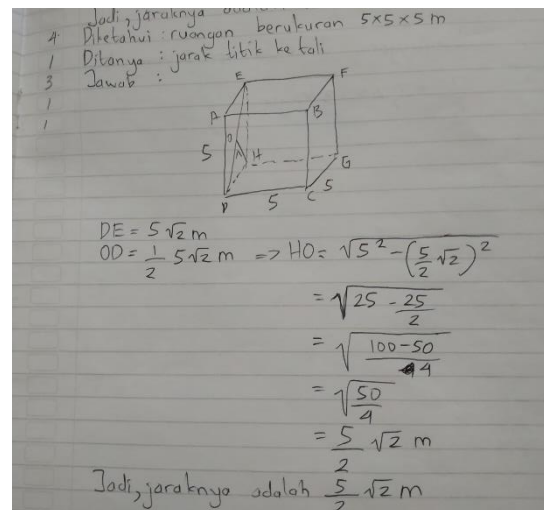 Jadi, jaraknya adalah
4 Diketahui : ruangan berukuran 5×5×5 m
1 Ditanya : jarak titik ke tali
3 Jawab :
1
1
E F
A B
O
5 H G
5
D 5 C
DE = 5√2 m
OD = 1/2 5√2 m => HO = √(5² - (5/2 √2)²)
= √(25 - 25/2)
= √((100-50)/4)
= √(50/4)
= 5/2 √2 m
Jadi, jaraknya adalah 5/2 √2 m